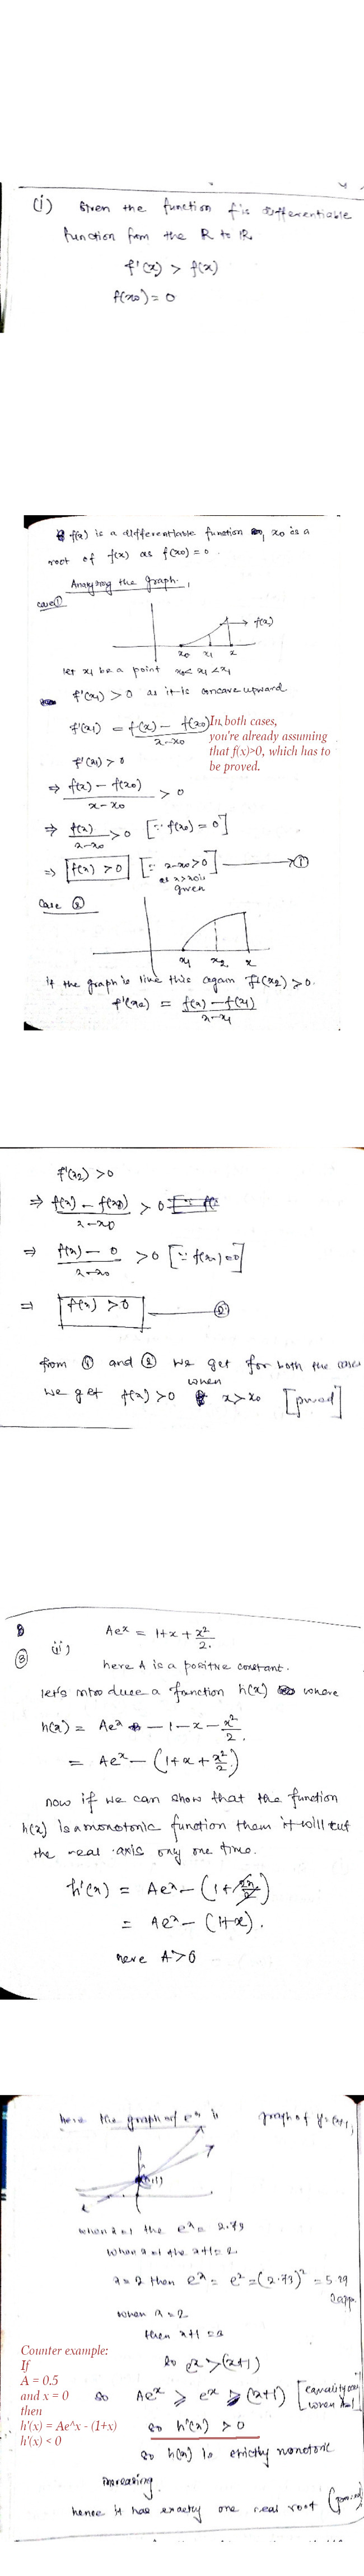 (i) Given the function f is differentiable
function from the R to R.
f'(x) > f(x)
f(x0) = 0
f(x) is a differentiable function x0 is a
root of f(x) as f(x0) = 0.
Analyzing the graph.
case ①
→ f(x)
x0 x1 x
let x1 be a point x0 < x1 < x
f'(x1) > 0 as it is concave upward
f'(x1) = f(x) - f(x0) / x - x0
In both cases,
you're already assuming
that f(x)>0, which has to
be proved.
f'(x1) > 0
⇒ f(x) - f(x0) / x - x0 > 0
⇒ f(x) / x - x0 > 0 [∵ f(x0) = 0]
⇒ f(x) > 0 [∵ x - x0 > 0] ①
as x > x0 is
given
Case ②
x1 x2 x
if the graph is like this again f'(x2) > 0.
f'(x2) = f(x) - f(x1) / x - x1
f'(x2) > 0
⇒ f(x) - f(x0) / x - x0 > 0
⇒ f(x) - 0 / x - x0 > 0 [∵ f(x0) = 0]
⇒ f(x) > 0 ②
from ① and ② we get for both the cases
when
we get f(x) > 0 x > x0 [proved]
③ (ii) Ae^x = 1 + x + x^2/2.
here A is a positive constant.
let's introduce a function h(x) where
h(x) = Ae^x - 1 - x - x^2/2.
= Ae^x - (1 + x + x^2/2)
now if we can show that the function
h(x) is a monotonic function then it will cut
the real axis only one time.
h'(x) = Ae^x - (1 + 2x/2)
= Ae^x - (1+x).
here A > 0
here the graph of e^x is graph of y = (x+1)
when x=1 the e^x = 2.73
when x=1 the x+1 = 2.
x = 2 then e^x = e^2 = (2.73)^2 = 5.29
when x = 2
then x+1 = 3
so e^x > (x+1)
Counter example:
If
A = 0.5
and x = 0
then
h'(x) = Ae^x - (1+x)
h'(x) < 0
so Ae^x ≥ e^x ≥ (x+1)
so h'(x) > 0
so h(x) is strictly monotonic
increasing.
hence it has exactly one real root